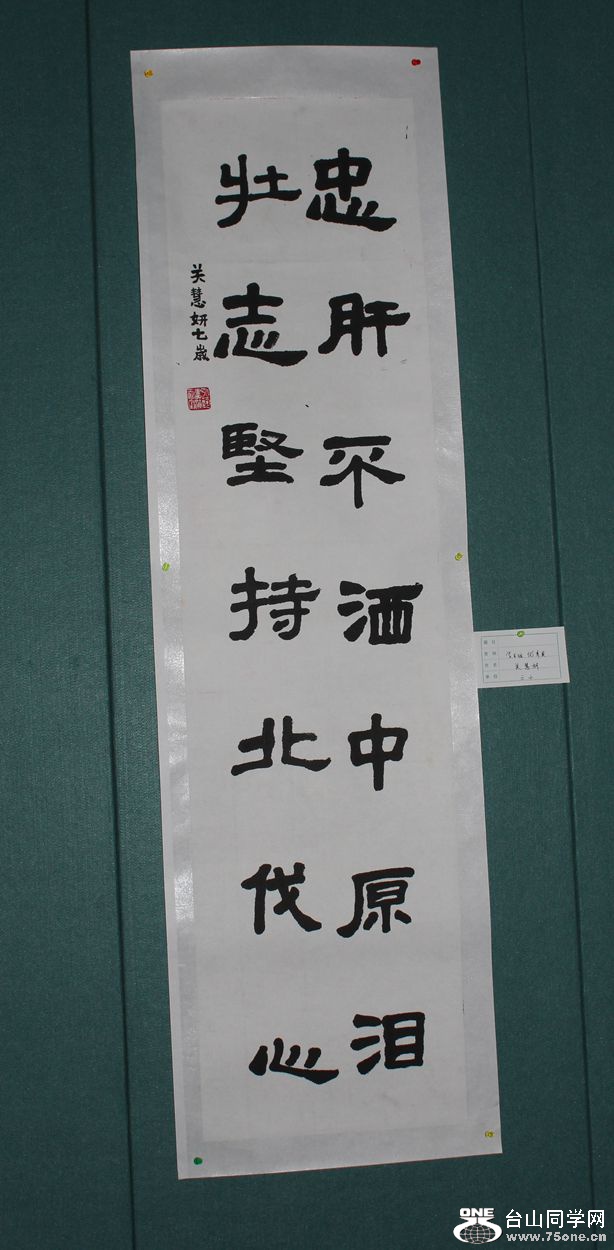 忠肝不洒中原泪
壮志堅持北伐心
关慧妍七歲
关慧妍
二小
ONE
台山同学网
www.75one.cn